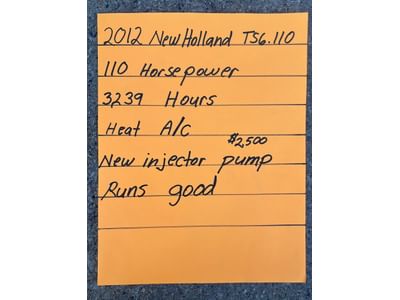 2012 New Holland TS6.110
110 Horsepower
3239 Hours
Heat A/C
$2,500
New injector pump
Runs good